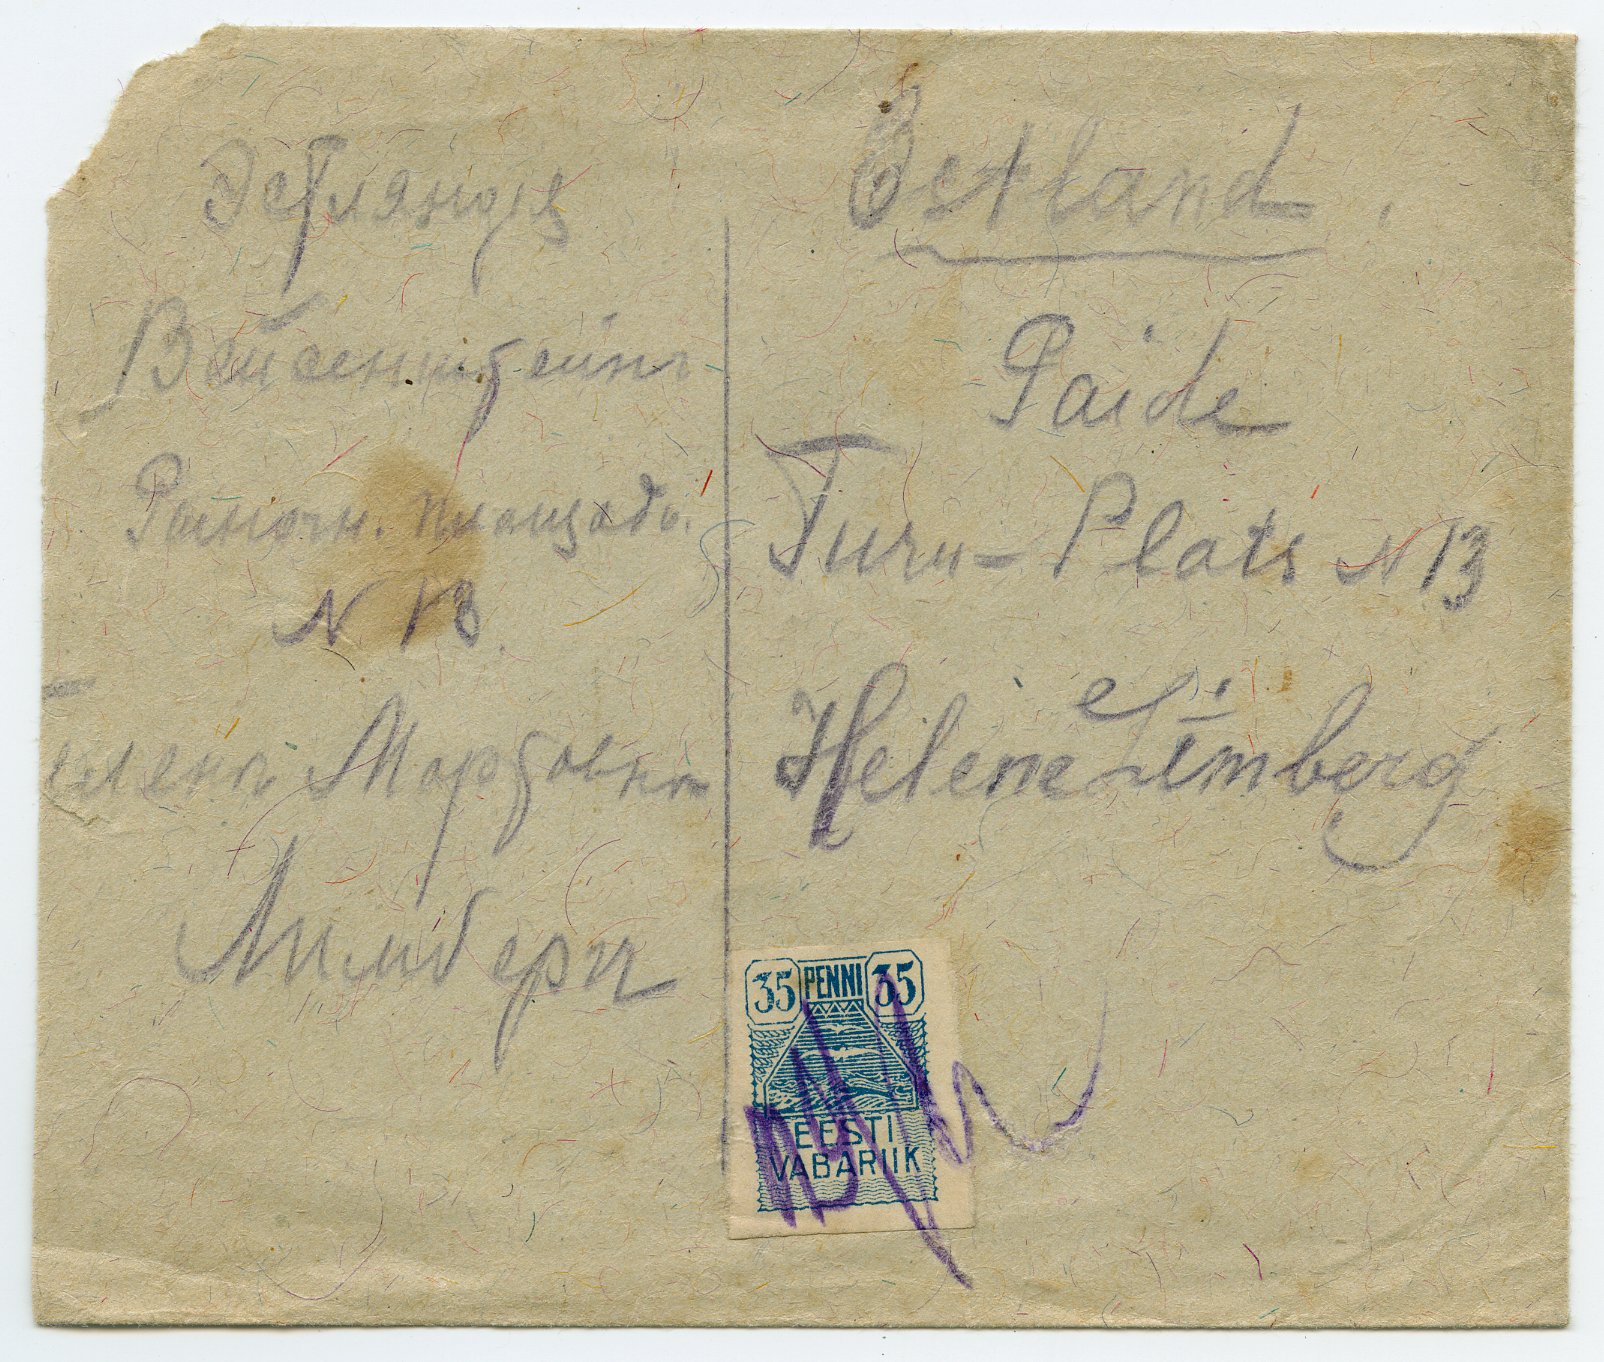 Эстляндiя
Вейсенштейнъ
Рыночн. площадь.
N 13.
Елень Мартовнѣ
Лимберг
Estland.
Paide
Turu-Plats N 13
Helene Limberg
35 PENNI 35
EESTI
VABARIIK